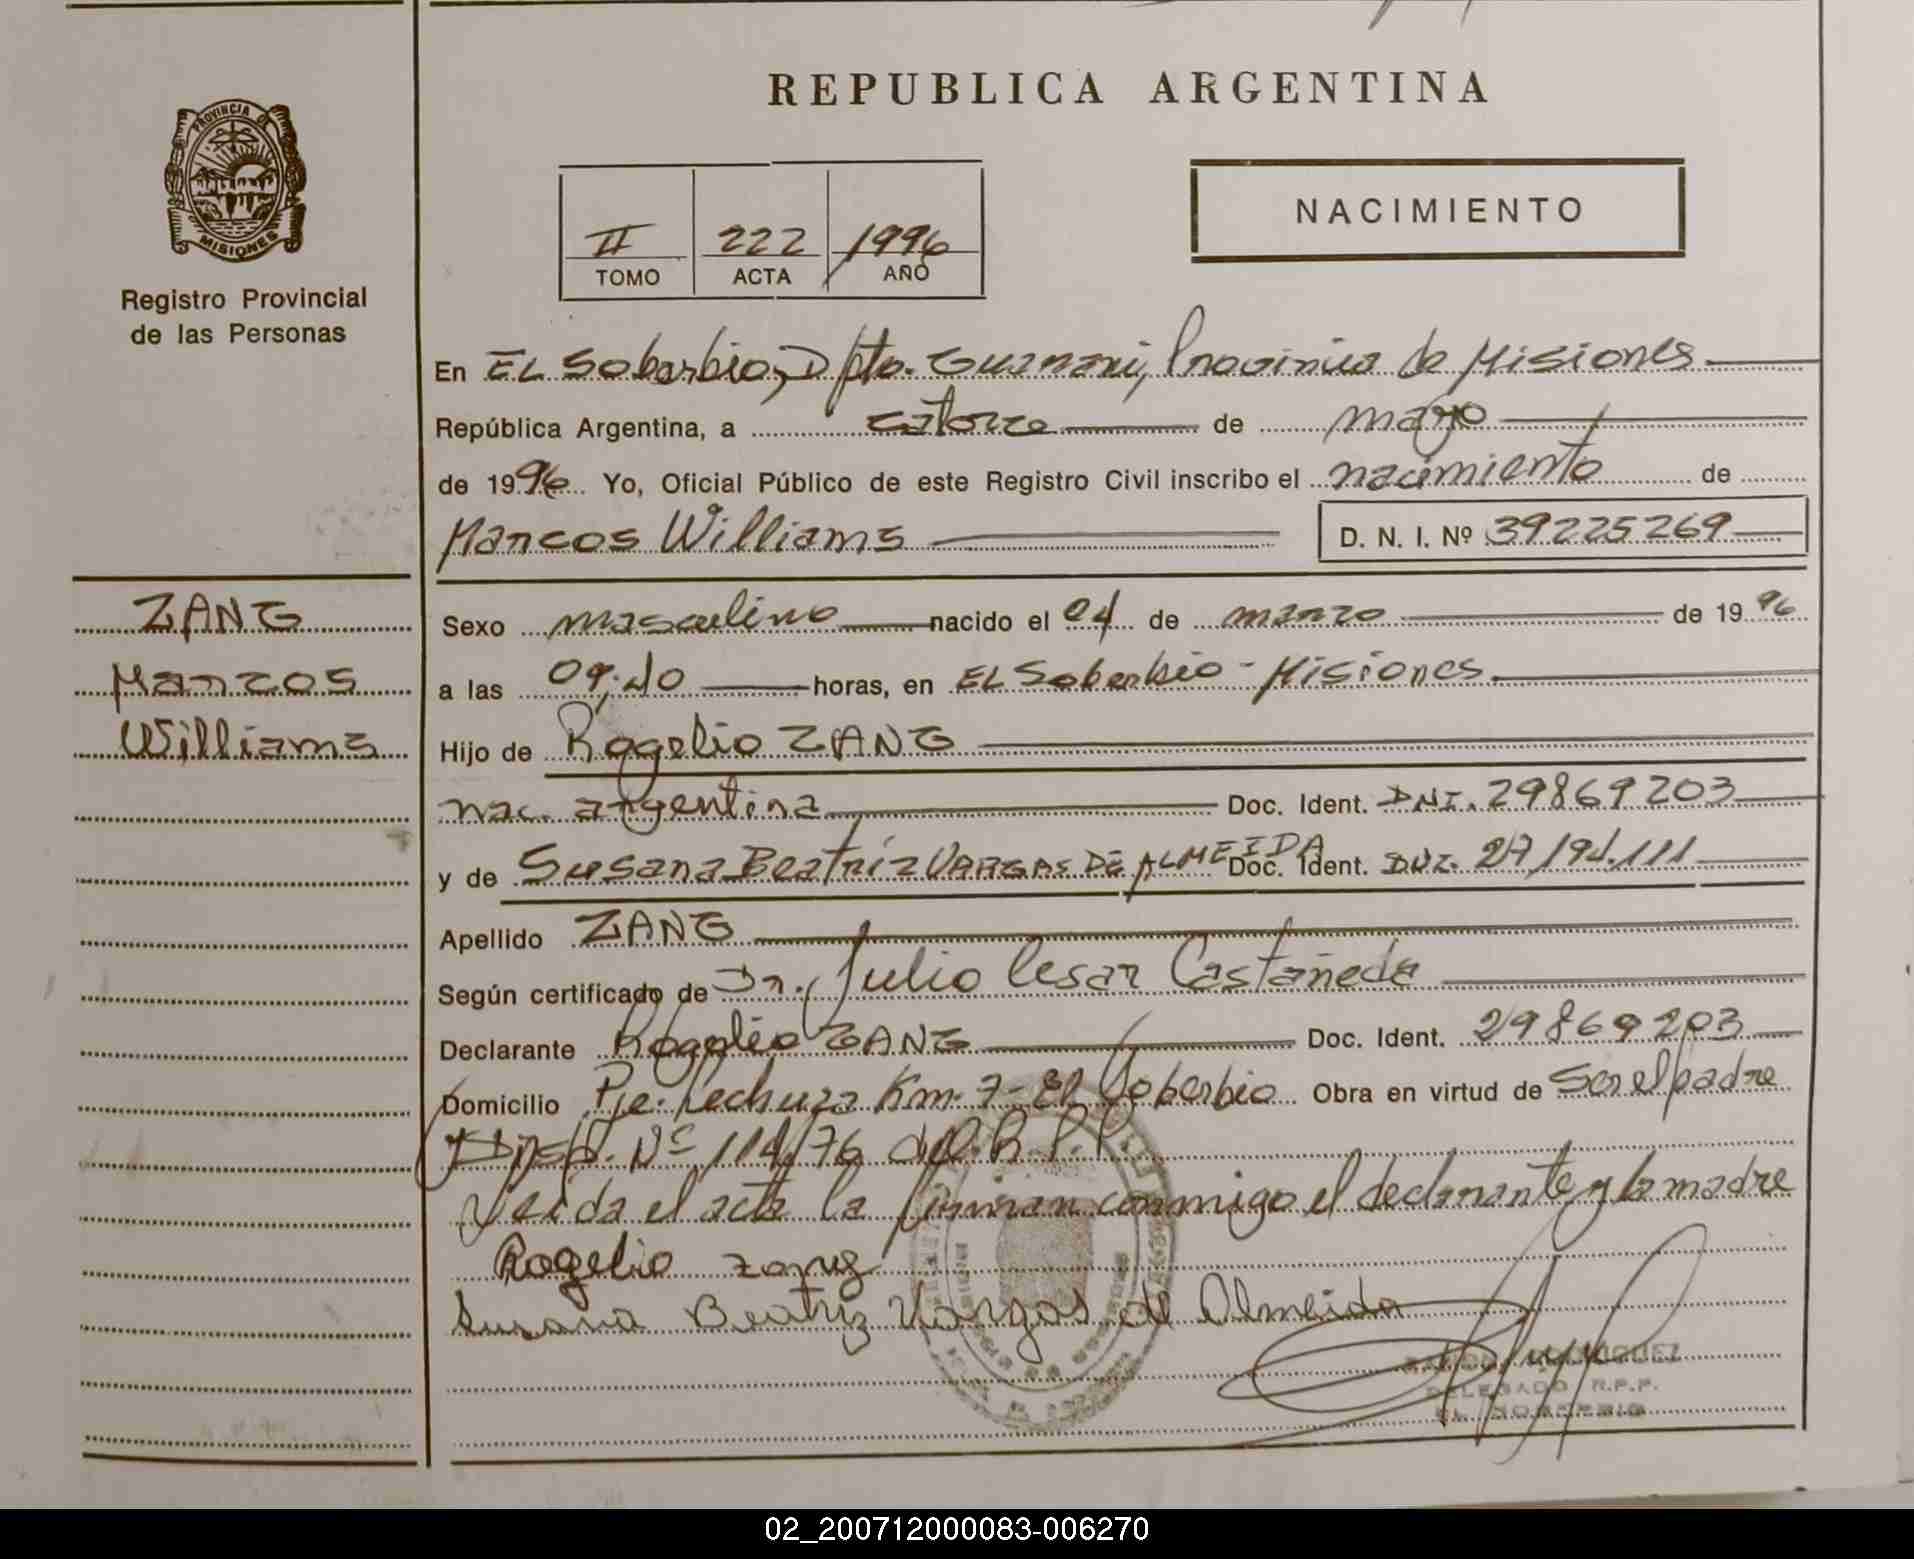 REPUBLICA ARGENTINA
PROVINCIA DE
MISIONES
Registro Provincial
de las Personas
II 222 1996
TOMO ACTA AÑO
NACIMIENTO
En EL Soberbio, Dpto. Guarani, Provincia de Misiones
República Argentina, a catorce de mayo
de 1996 Yo, Oficial Público de este Registro Civil inscribo el nacimiento de
Marcos Williams D. N. I. Nº 39225269
ZANG
Marcos
Williams
Sexo masculino nacido el 04 de marzo de 1996
a las 09,40 horas, en EL Soberbio - Misiones
Hijo de Rogelio ZANG
nac. argentina Doc. Ident. DNI. 29869203
y de Susana Beatríz VARGAS DE ALMEIDA Doc. Ident. DNI. 27194.111
Apellido ZANG
Según certificado de Dr. Julio Cesar Castañeda
Declarante Rogelio ZANG Doc. Ident. 29869203
Domicilio Pje. Lechuza Km. 7 - El Soberbio Obra en virtud de Ser el padre
y Disp. Nº 114/76 del R.P.P.
Leida el acta la firman conmigo el declarante y la madre
Rogelio zang
Susana Beatriz Vargas de Almeida
DELEGADO R.P.P.
EL SOBERBIO
02_200712000083-006270